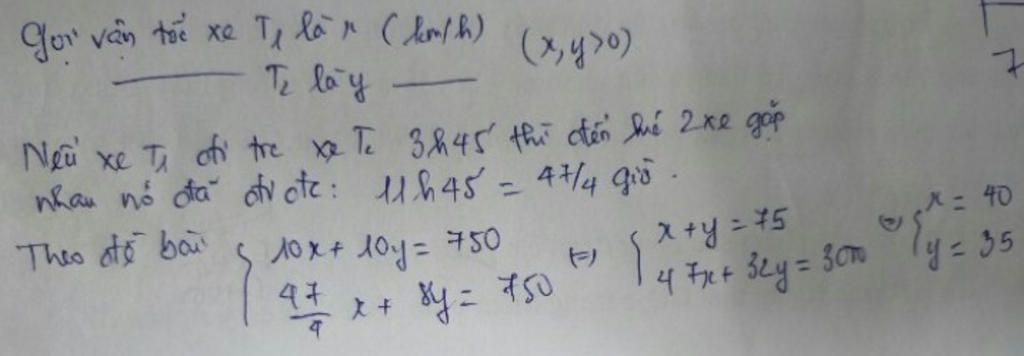 Gọi vận tốc xe T₁ là x (km/h) (x,y>0)
——— T₂ là y ———
7
Nếu xe T₁ đi trc xe T₂ 3h45' thì đến khi 2 xe gặp
nhau nó đã đi đc: 11h45' = 47/4 giờ.
Theo đề bài { 10x + 10y = 750 (=) { x + y = 75 (=) { x = 40
47/4 x + 8y = 750 47x + 32y = 3000 y = 35